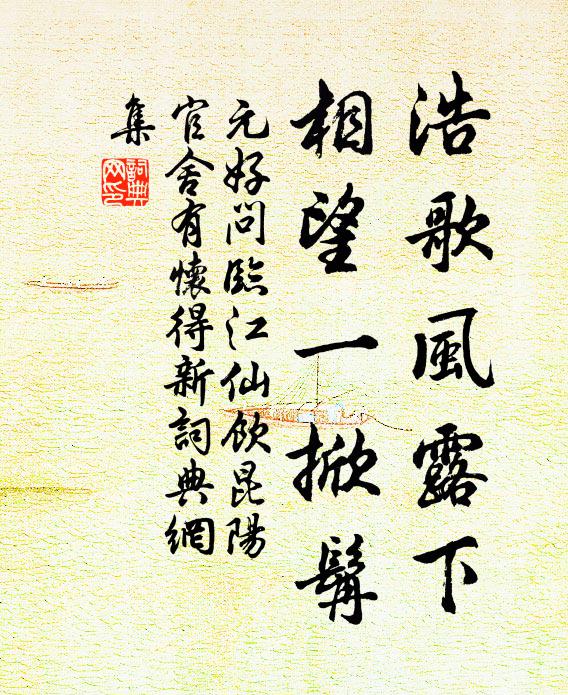 浩歌風露下
相望一掀髯
元好問臨江仙飲昆陽
官舍有懷得新詞典網
集
詞典
网印